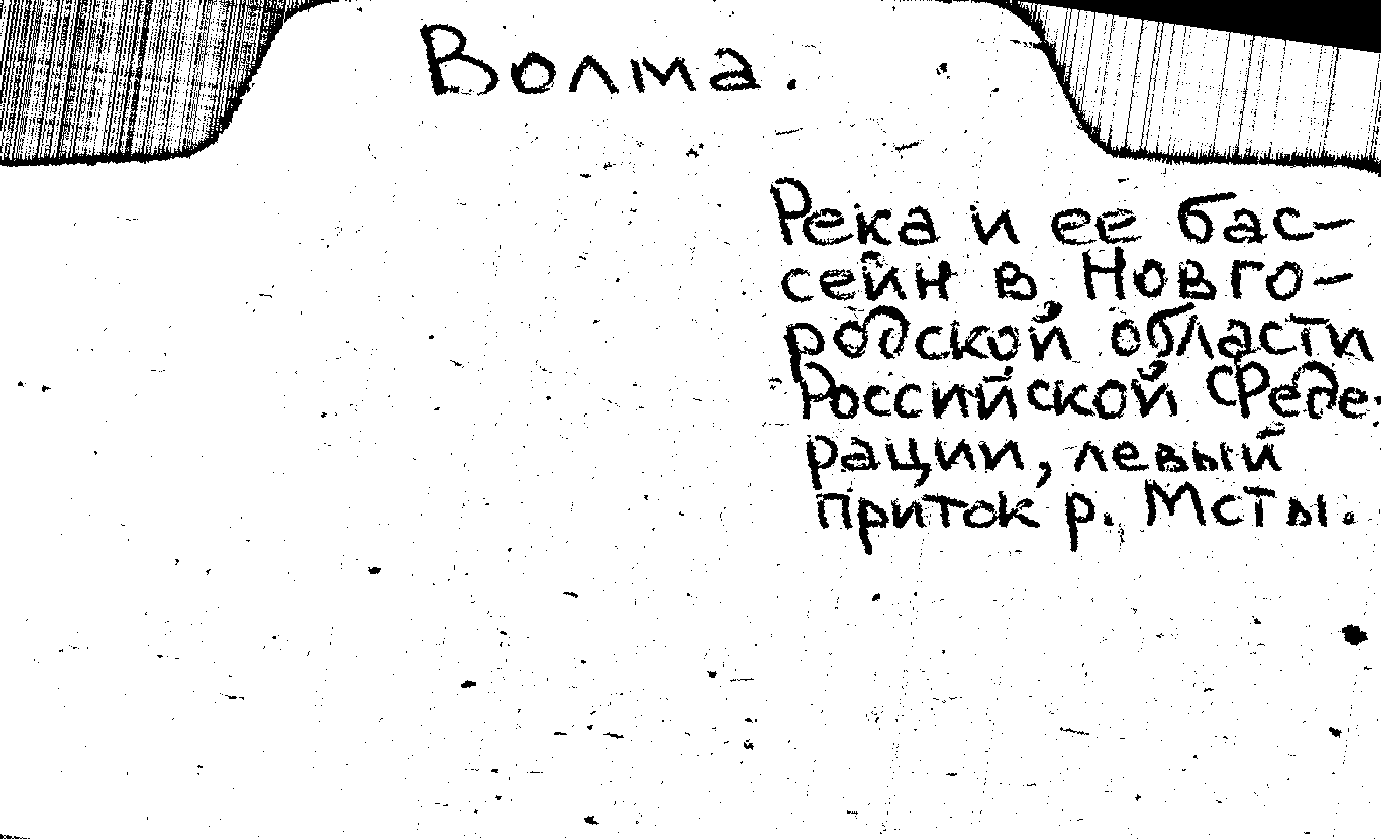 Волма.
Река и ее бас-
сейн в Новго-
родской области
Российской Феде-
рации, левый
приток р. Мсты.